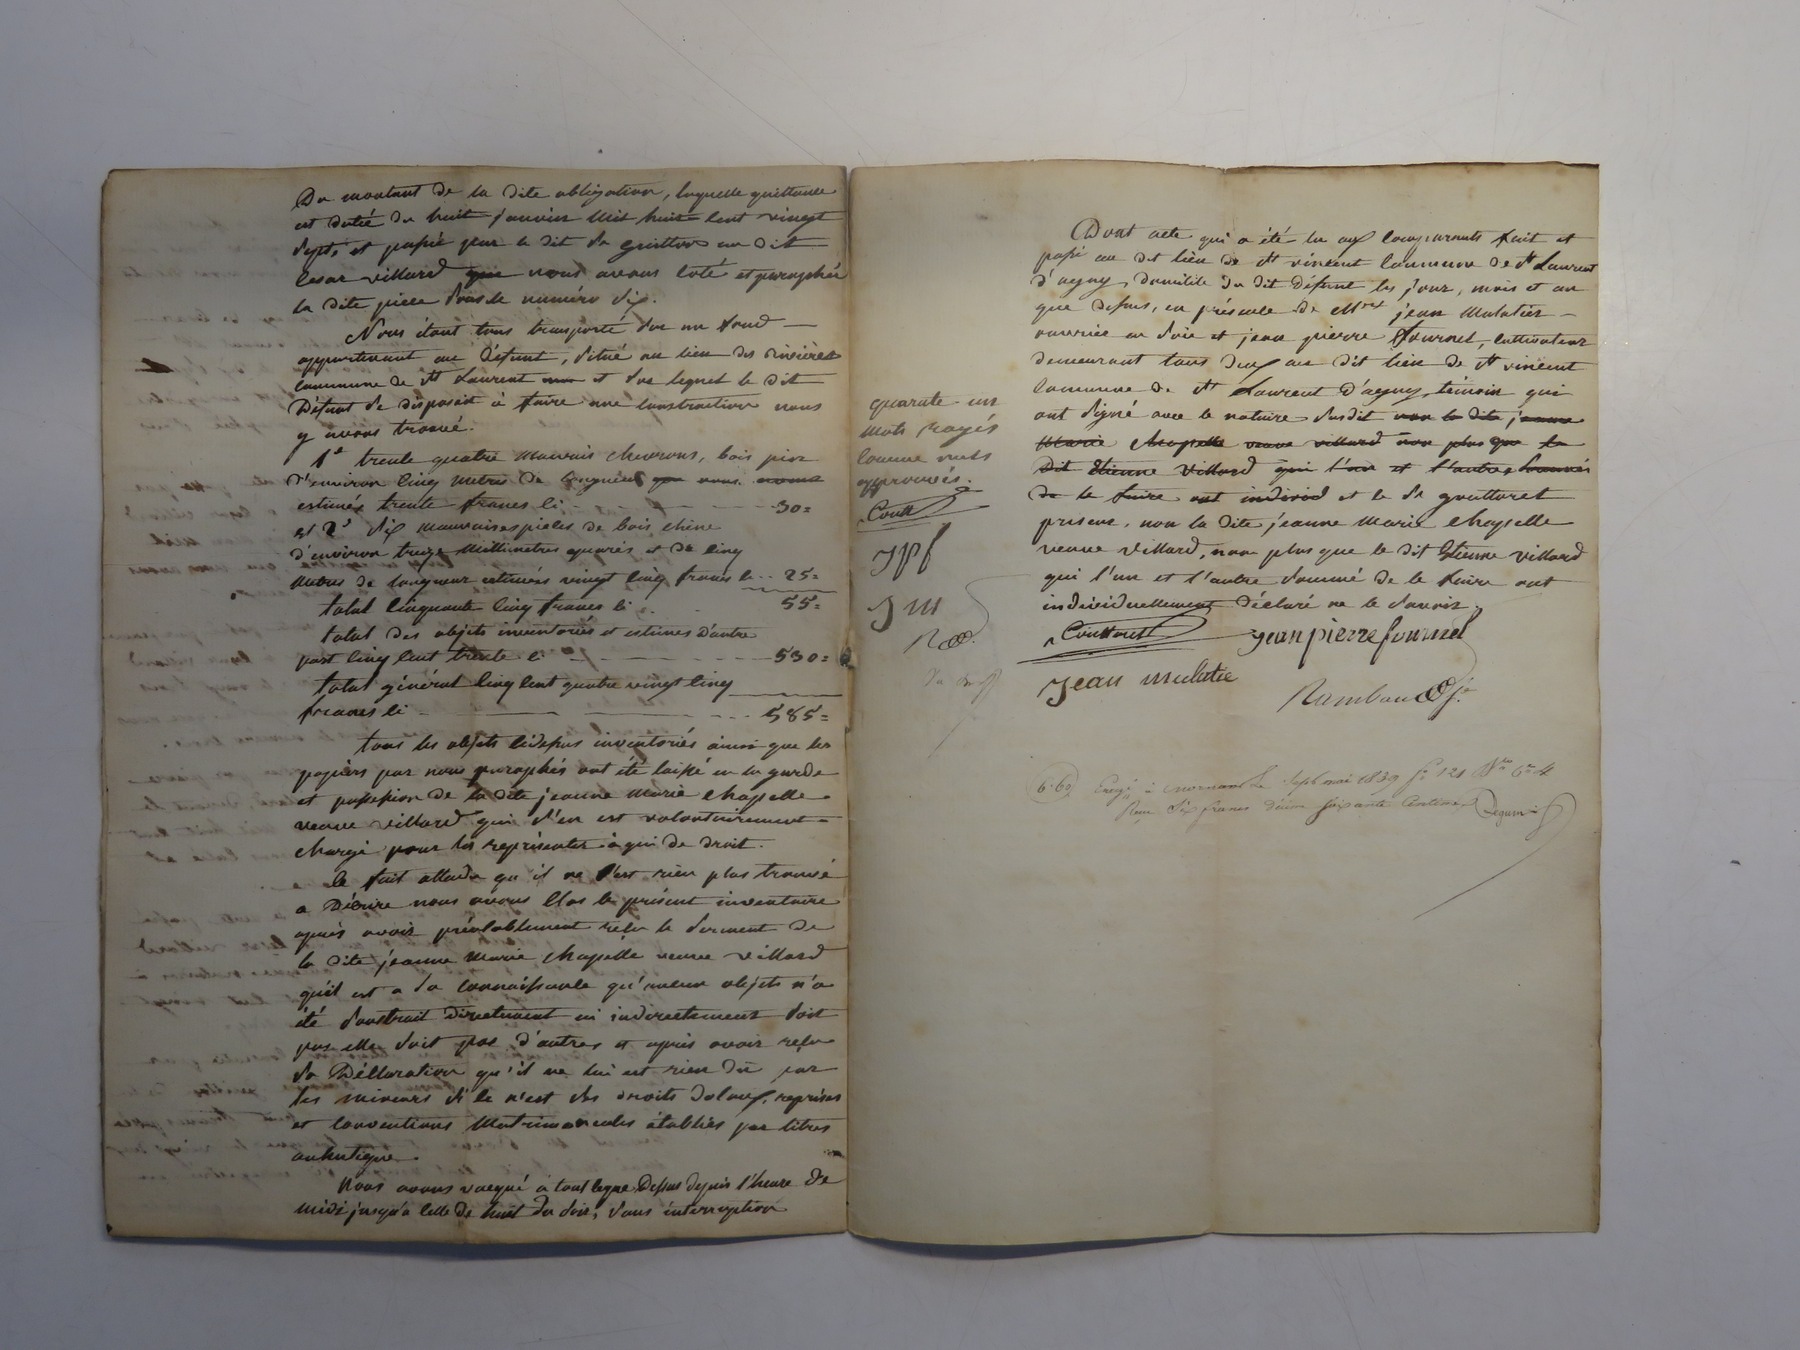 Du montant de la dite obligation, laquelle quittance
est datée du huit janvier mil huit cent vingt
sept, et passé par le dit Sr au dit
Cesar Villard que nous avons coté et paraphée
la dite pièce sous le numéro dix.
Nous étant tous transporté sur un fond
appartenant au Défunt, situé au lieu des rivières
commune de St Laurent et sur lequel le dit
Défunt se disposait à faire une construction nous
y avons trouvé.
1° trente quatre mauvais chevrons, bois pin
d'environ cinq metres de longueur que nous avons
estimés trente francs ci 30=
et 2° dix mauvaises pieces de bois chêne
d'environ treize millimetres quarés et de cinq
metres de longueur estimées vingt cinq francs ci 25=
total cinquante cinq francs ci 55=
total des objets inventoriés et estimés d'autre
part cinq cent trente ci 530=
total général cinq cent quatre vingt cinq
francs ci 585=
tous les objets cidessus inventoriés ainsi que les
papiers par nous paraphés ont été laissé en la garde
et possession de la dite jeanne marie chapelle
veuve villard qui s'en est volontairement
chargé pour les représenter à qui de droit.
Ce fait attendu qu'il ne s'est rien plus trouvé
a Décrire nous avons Clos le présent inventaire
après avoir préalablement reçu le serment de
la dite jeanne marie chapelle veuve villard
qu'il est a sa connaissance qu'aucun objets n'a
été soustrait directement ni indirectement soit
par elle soit par d'autres et après avoir reçu
sa Déclaration qu'il ne lui est rien dû par
les mineurs si ce n'est des droits dotaux, reprises
et conventions matrimoniales établies par titres
autentique.
Nous avons vacqué a tout ceque Dessus depuis l'heure de
midi jusqu'a celle de huit du soir, sans interruption
quarate un
mots rayés
comme nuls
approuvés.
Cout
JPf
J m
R
Dont acte qui a été lu aux comparants fait et
passé au dit lieu de St vincent commune de St Laurent
d'agny, domicile du dit défunt les jour, mois et an
que dessus, en présence de Mres jean Mulatier
ouvrier en soie et jean pierre fournel, cultivateur
demeurant tous deux au dit lieu de St vincent
commune de St Laurent d'agny, témoin qui
ont signé avec le notaire susdit non la dite jeanne
Marie chapelle veuve villard non plus que le
dit Etienne Villard qui l'un et l'autre sommés
de le faire ont individ et le Sr goutteret
priseur, non la dite jeanne marie chapelle
veuve villard, non plus que le dit Etienne Villard
qui l'un et l'autre sommé de le faire ont
individuellement déclaré ne le savoir.
jean pierre fournel
jean mulatie
6.60 Enregé à mornant le sept mai 1839 fo 121
Reçu six francs décime soixante Centimes